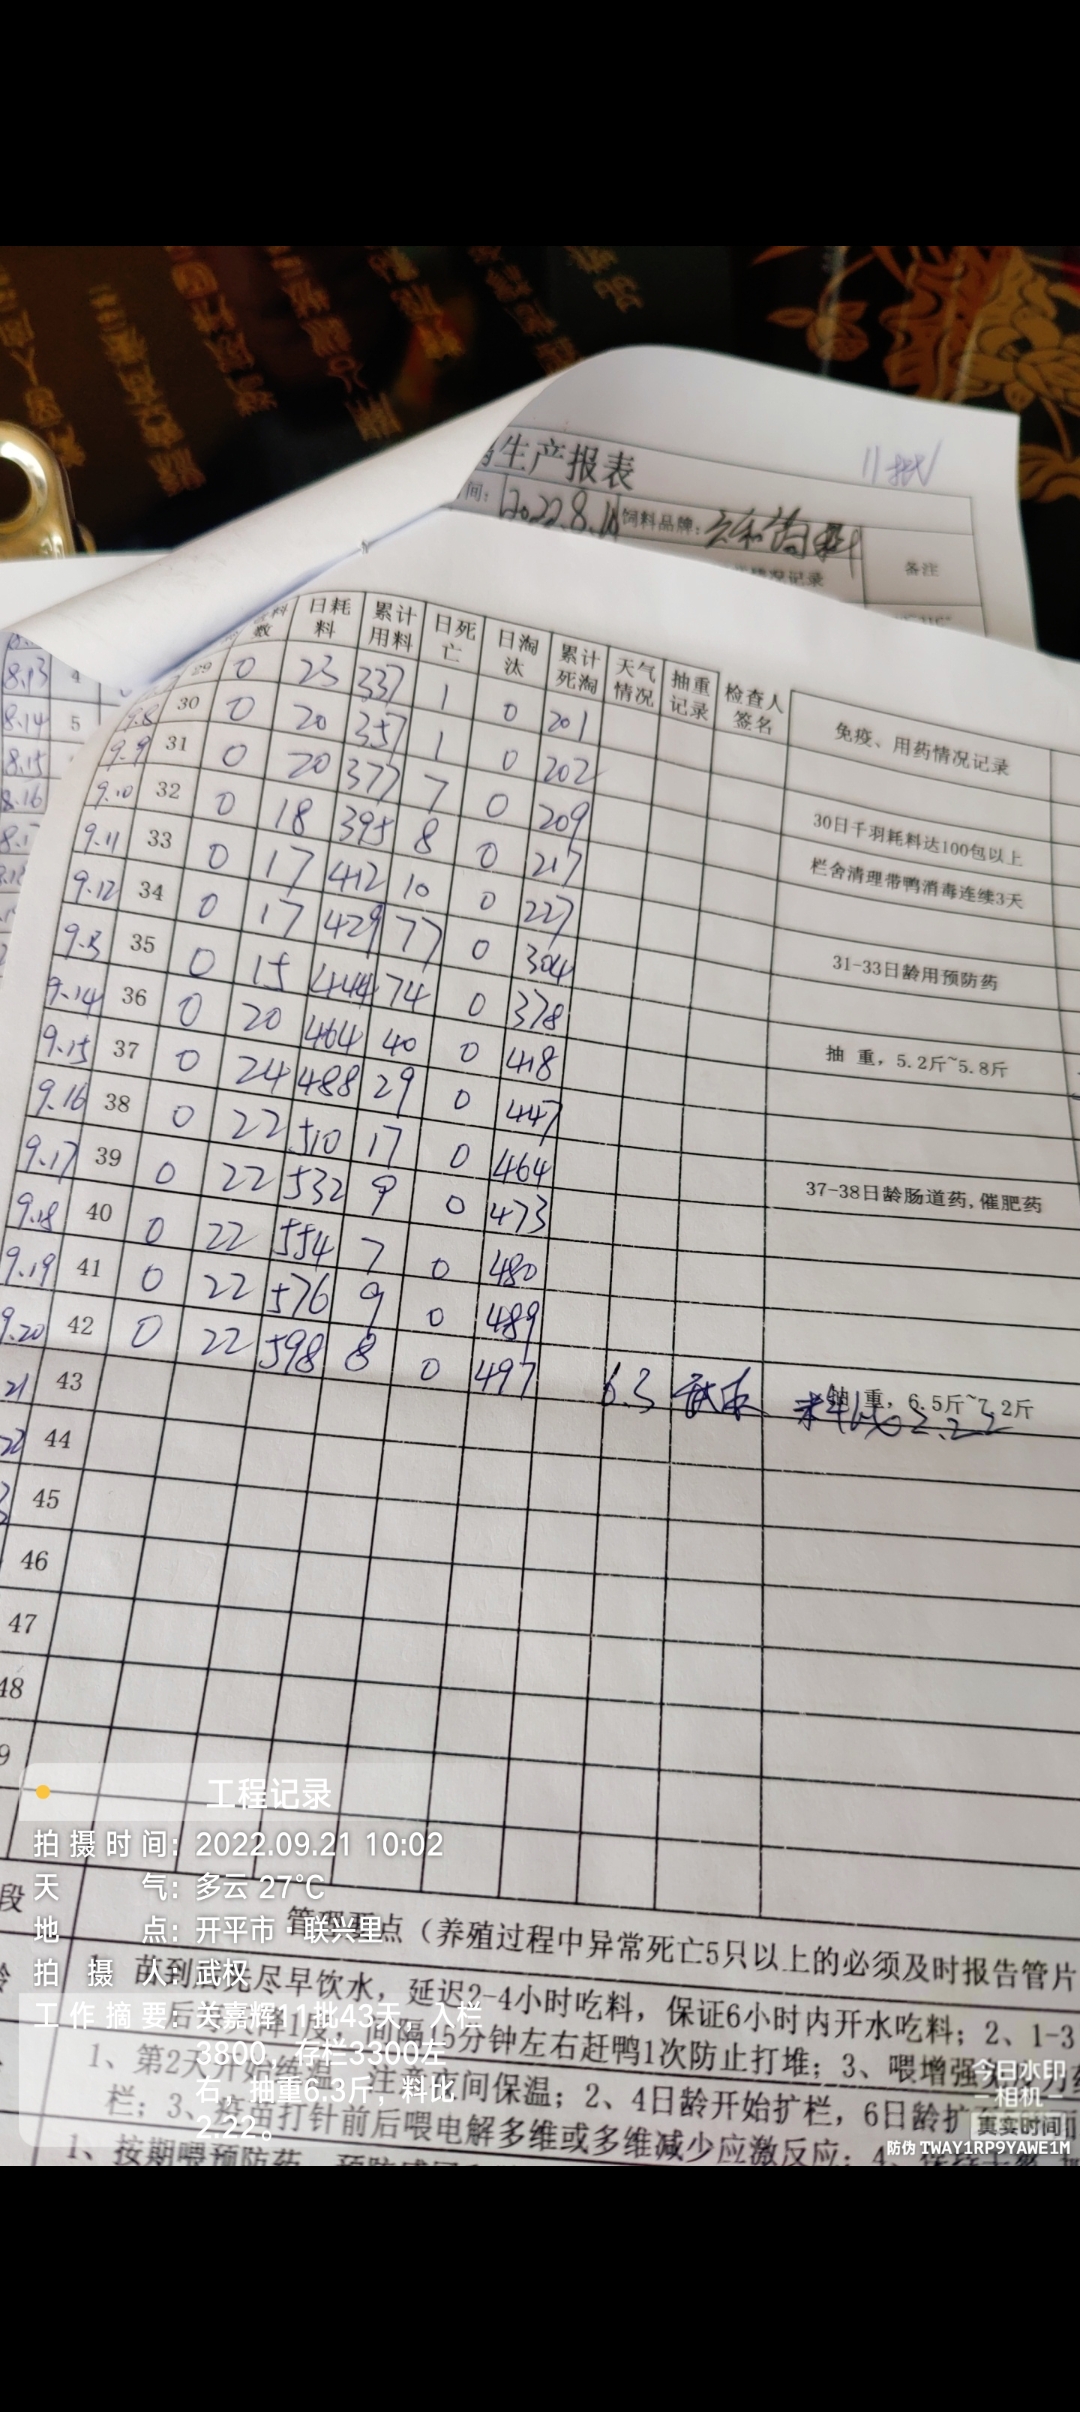 生产报表
11批
间:
2022.8.
饲料品牌:
情况记录
备注
8.13 4
8.14 5
8.15
8.16
料数 日耗料 累计用料 日死亡 日淘汰 累计死淘 天气情况 抽重记录 检查人签名 免疫、用药情况记录
29 0 23 337 1 0 201
9.8 30 0 20 357 1 0 202
9.9 31 0 20 377 7 0 209 30日千羽耗料达100包以上
9.10 32 0 18 395 8 0 217 栏舍清理带鸭消毒连续3天
9.11 33 0 17 412 10 0 227
9.12 34 0 17 429 77 0 304 31-33日龄用预防药
9.13 35 0 15 444 74 0 378
9.14 36 0 20 464 40 0 418 抽 重, 5.2斤~5.8斤
9.15 37 0 24 488 29 0 447
9.16 38 0 22 510 17 0 464
9.17 39 0 22 532 9 0 473 37-38日龄肠道药,催肥药
9.18 40 0 22 554 7 0 480
9.19 41 0 22 576 9 0 489
9.20 42 0 22 598 8 0 497
21 43 6.3 武权 抽 重, 6.5斤~7.2斤
料比2.22
22 44
45
46
47
48
9
工程记录
拍摄时间: 2022.09.21 10:02
天气: 多云 27℃
地点: 开平市·联兴里
拍摄人: 武权
工作摘要: 关嘉辉11批43天,入栏
3800,存栏3300左
右,抽重6.3斤,料比
2.22。
段
管理要点（养殖过程中异常死亡5只以上的必须及时报告管片
尽早饮水, 延迟2-4小时吃料, 保证6小时内开水吃料; 2、1-3
间隔15分钟左右赶鸭1次防止打堆; 3、喂增强
1、第2天开始 注意夜间保温; 2、4日龄开始扩栏, 6日龄扩
栏; 3、疫苗打针前后喂电解多维或多维减少应激反应; 4、
1、按期喂预防药
今日水印
相机
真实时间
防伪 TWAY1RP9YAWE1M